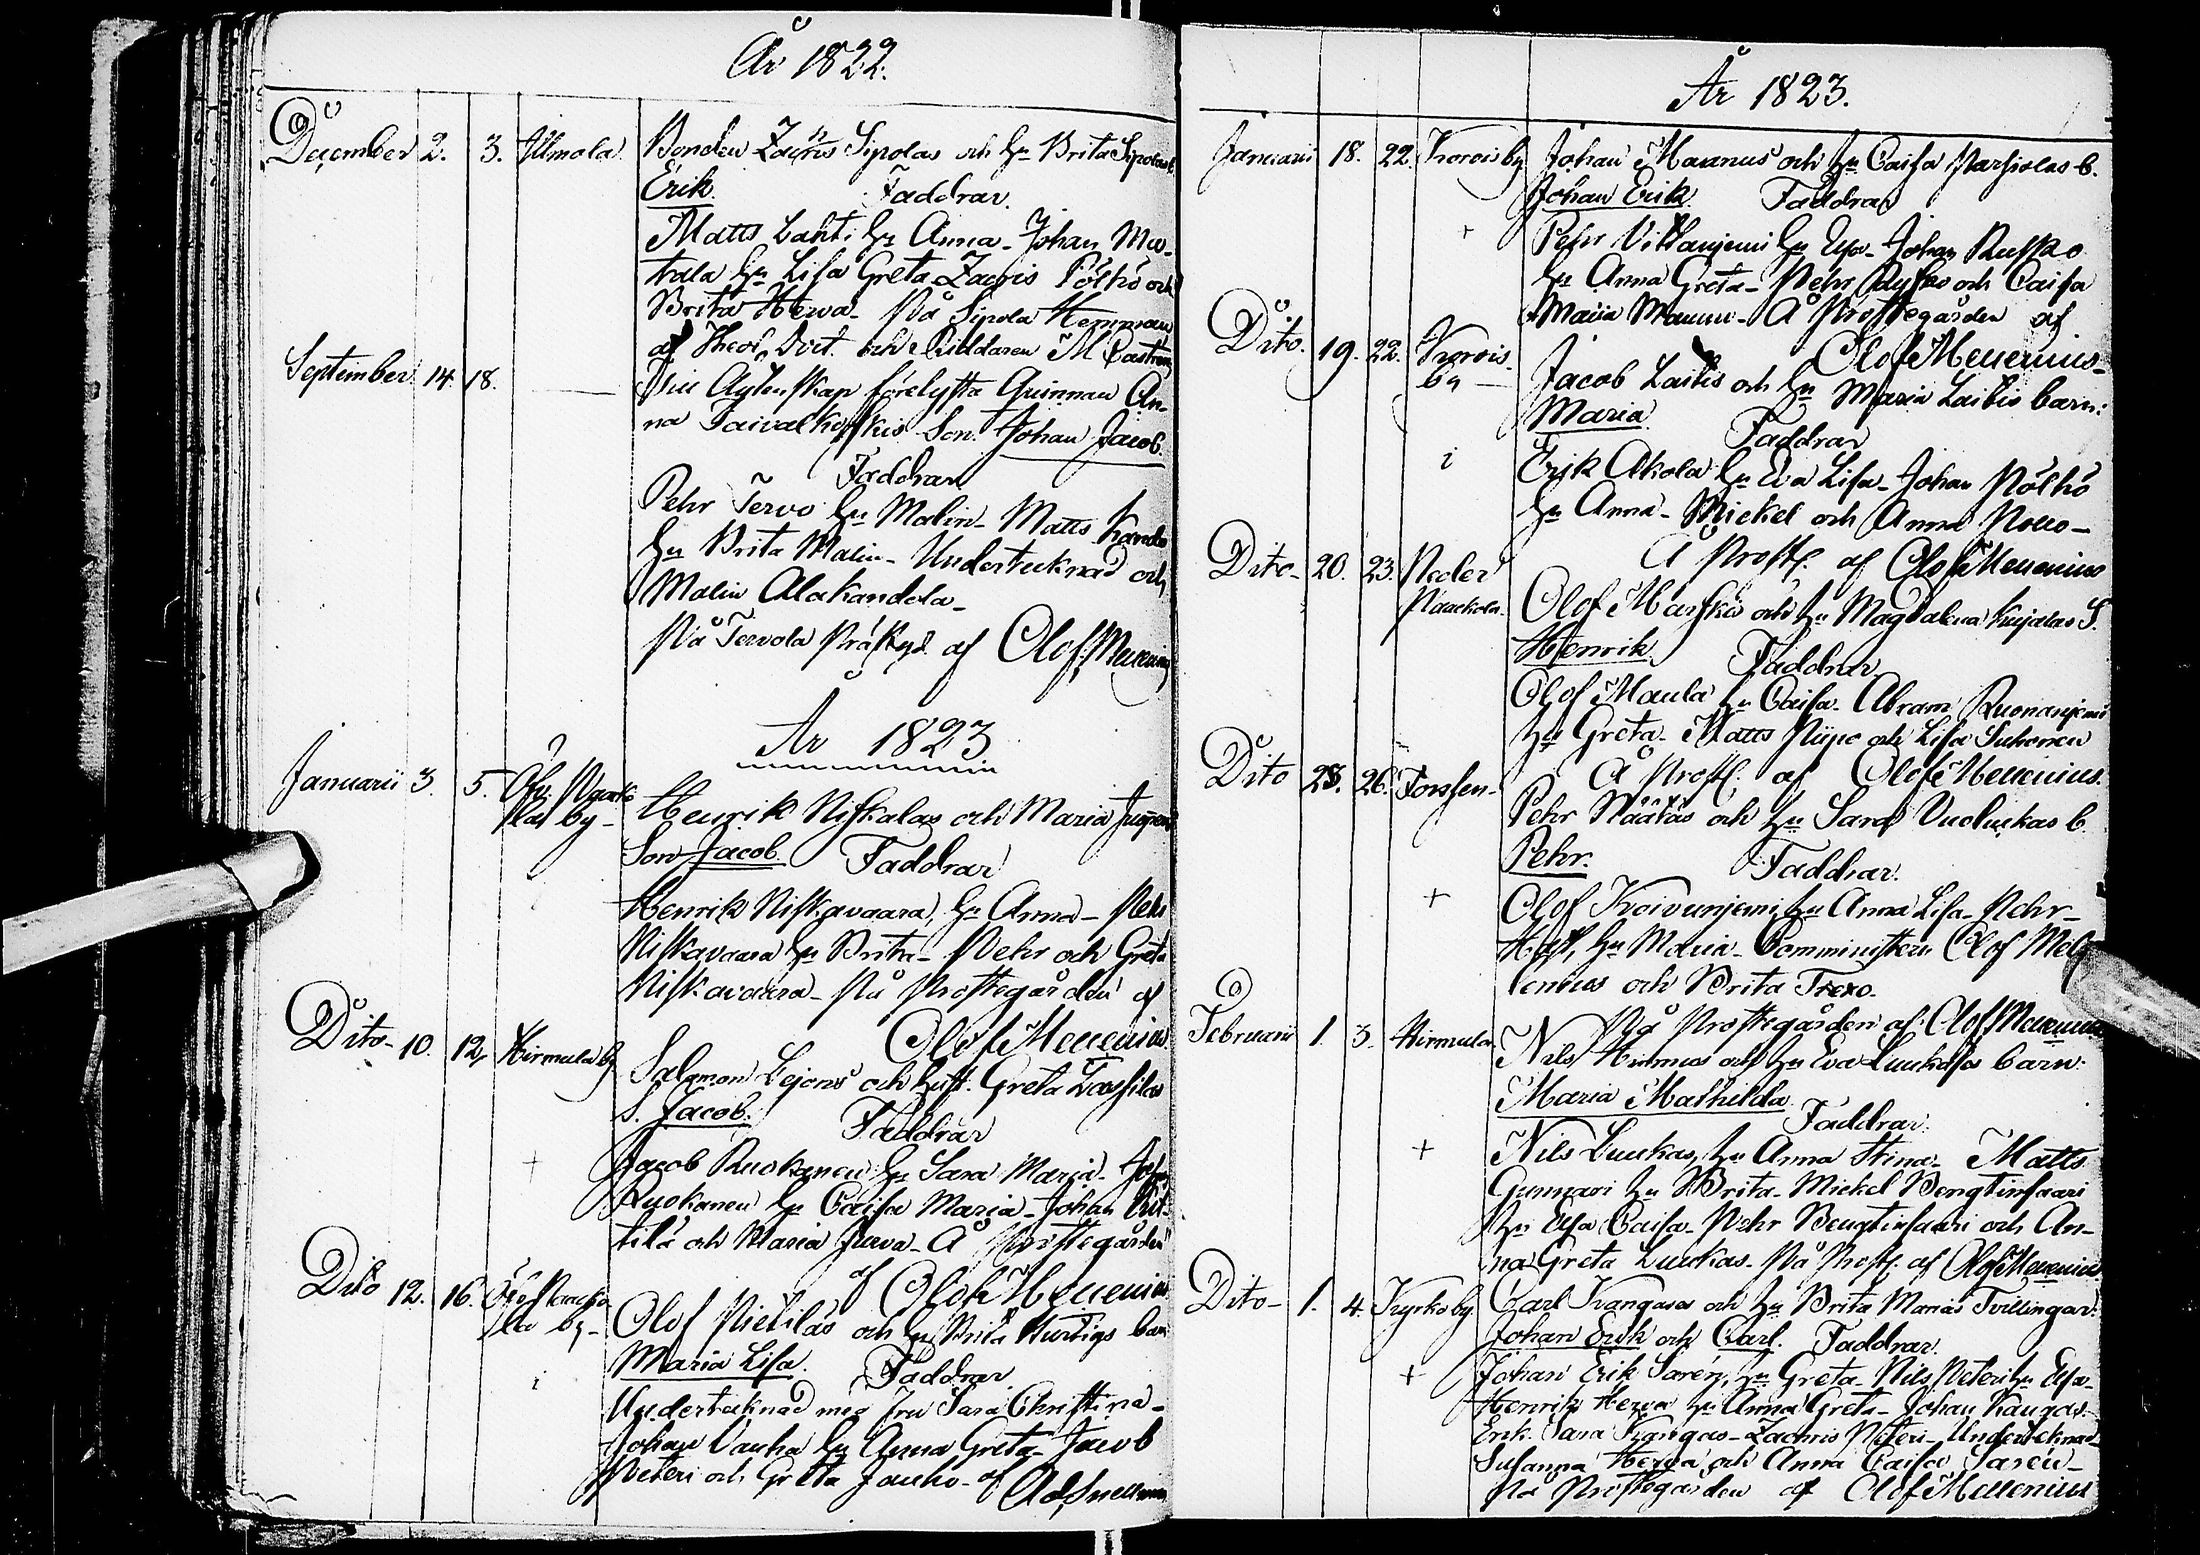 År 1822.
December 2. 3. Ilmola. Bonden Zachris Sipolas och hu Brita Sipolas
Erik. Faddrar.
Matts Lahti hu Anna - Johan Ma-
tala hu Lisa Greta Zacris Pölhö och
Brita Herva - På Sipola Hemman
af Theol. Doct. och Riddaren M Castrén
September 14. 18. — Sin Agtenskap förelysta Quinnan An-
na Taivalkoskis Son. Johan Jacob.
Faddrar
Pehr Tervo hu Malin - Matts Kando
hu Brita Malin - Undertecknad och
Malin Alakandola -
På Tervola Prästgd. af Olof Mellenius
År 1823
Januarii 3. 5. Öfv. Paak-
kola by - Henrik Niskalas och Maria
Son Jacob. Faddrar
Henrik Niskavaara, hu Anna - Pehr
Niskavaara hu Brita - Pehr och Greta
Niskavaara - På Prostegården af
Olof Mellenius.
Dito - 10. 12. Hirmula by Salamon Lejons och hust. Greta Lassilas
S. Jacob. Faddrar
+ Jacob Ruokanen hu Sara Maria - Johan
Ruokanen hu Caisa Maria - Johan
tilä och Maria Jurva - Å Prostegården
af Olof Mellenius
Dito 12. 16. Öfv. Paakko-
la by - Olof Pietiläs och hu Brita Hurtigs barn
Maria Lisa. Faddrar
i Undertecknad med Fru Sara Christina -
Johan Vauha hu Anna Greta - Jacob
Peteri och Greta Jauho - af Ad. Snellman
År 1823.
Januarii 18. 22. Korvis by Johan Maunus och hu Caisa Parsiolas b.
Johan Erik. Faddrar
+ Pehr Viklanjemi hu Eva - Johan Rusko
hu Anna Greta - Pehr Rusko och Caisa
Maria Maunu - Å Prostegården af
Olof Mellenius -
Dito. 19. 22. Korvis-
by — Jacob Laitis och hu Maria Laitis barn:
Maria Faddrar
i Erik Akola hu Eva Lisa - Johan Pölhö
hu Anna - Mickel och Anna Pollo -
Å Prostg. af Olof Mellenius
Dito - 20. 23. Neder
Paackola. Olof Marskiö och hu Magdalena Kujalas S.
Henrik. Faddrar
Olof Maula hu Caisa - Abram Ruonanjemi
hu Greta - Matts Piipo och Lisa Suhonen
Å Prostg. af Olof Mellenius.
Dito 25. 26. Torssen - Pehr Näätäs och hu Sara Vuoluckas b.
Pehr. Faddrar.
+ Olof Koivunjemi hu Anna Lisa - Pehr -
Hast, hu Maria - Comministern Olof Mel-
lenius och Brita Trexo.
På Prostegården af Olof Mellenius
Februarii 1. 3. Hirmula. Nils Hirmus och hu Eva Luukas barn:
Maria Mathilda. Faddrar:
+ Nils Luukas, hu Anna Stina - Matts
Gunnari hu Brita - Mickel Bengtinsaari
hu Elsa Caisa - Pehr Bengtinsaari och An-
na Greta Luukas - På Prostg. af Olof Mellenius
Dito - 1. 4. Kyrko by Carl Kangasas och hu Brita Marias Tvillingar:
Johan Erik och Carl. Faddrar.
+ Johan Erik Sarén, hu Greta - Nils Peteri hu Elsa -
Henrik Herva hu Anna Greta - Johan Kangas -
Erik. Sara Kangas - Zachris Peteri - Undertecknad -
Susanna Herva och Anna Caisa Sarén -
På Prostegården af Olof Mellenius